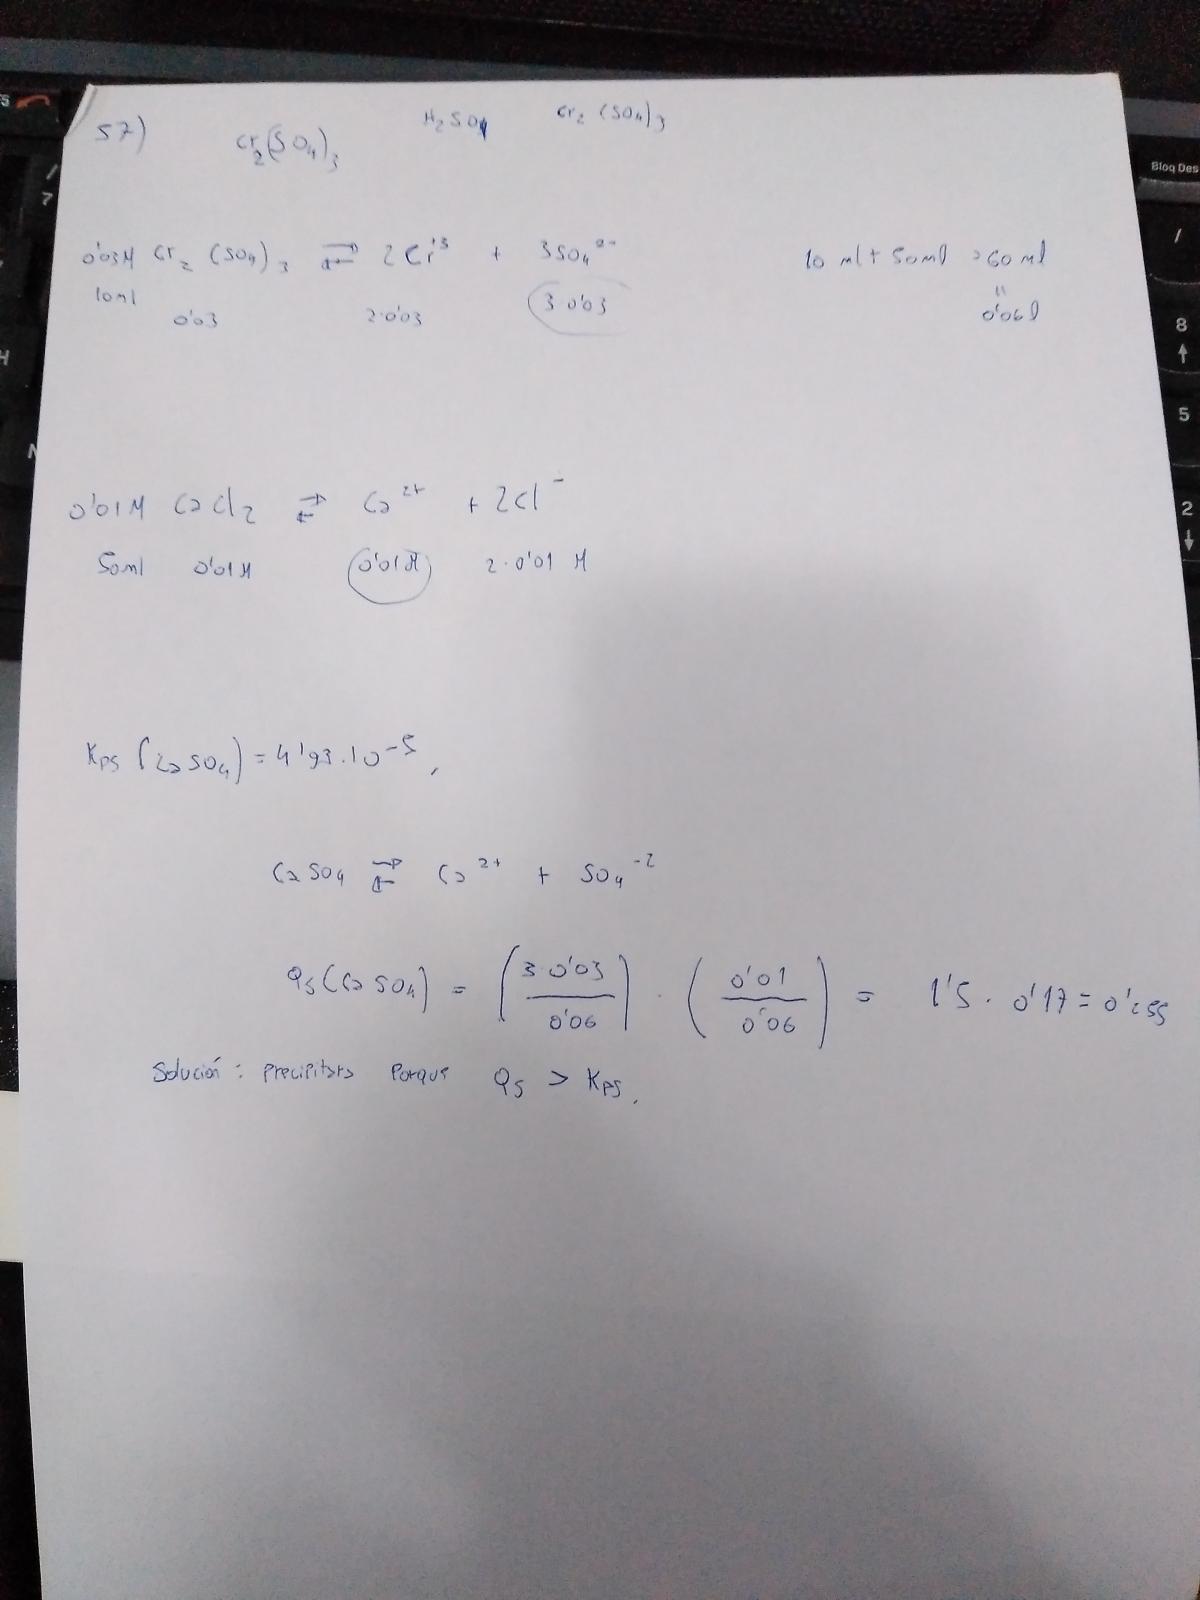 57)
H₂SO₄ Cr₂(SO₄)₃
Cr₂(SO₄)₃
0'03M Cr₂(SO₄)₃ ⇄ 2Cr⁺³ + 3SO₄²⁻ 10 ml + 50ml = 60 ml
10ml 0'03 2·0'03 3·0'03 = 0'06 l
0'01M CaCl₂ ⇄ Ca²⁺ + 2Cl⁻
50ml 0'01M 0'01M 2·0'01 M
Kps (CaSO₄) = 4'93·10⁻⁵,
CaSO₄ ⇄ Ca²⁺ + SO₄⁻²
Qs(CaSO₄) = (3·0'03/0'06) · (0'01/0'06) = 1'5 · 0'17 = 0'255
Solución: Precipitara Porque Qs > Kps.
Bloq Des
/
7
/
8
5
2
H
N